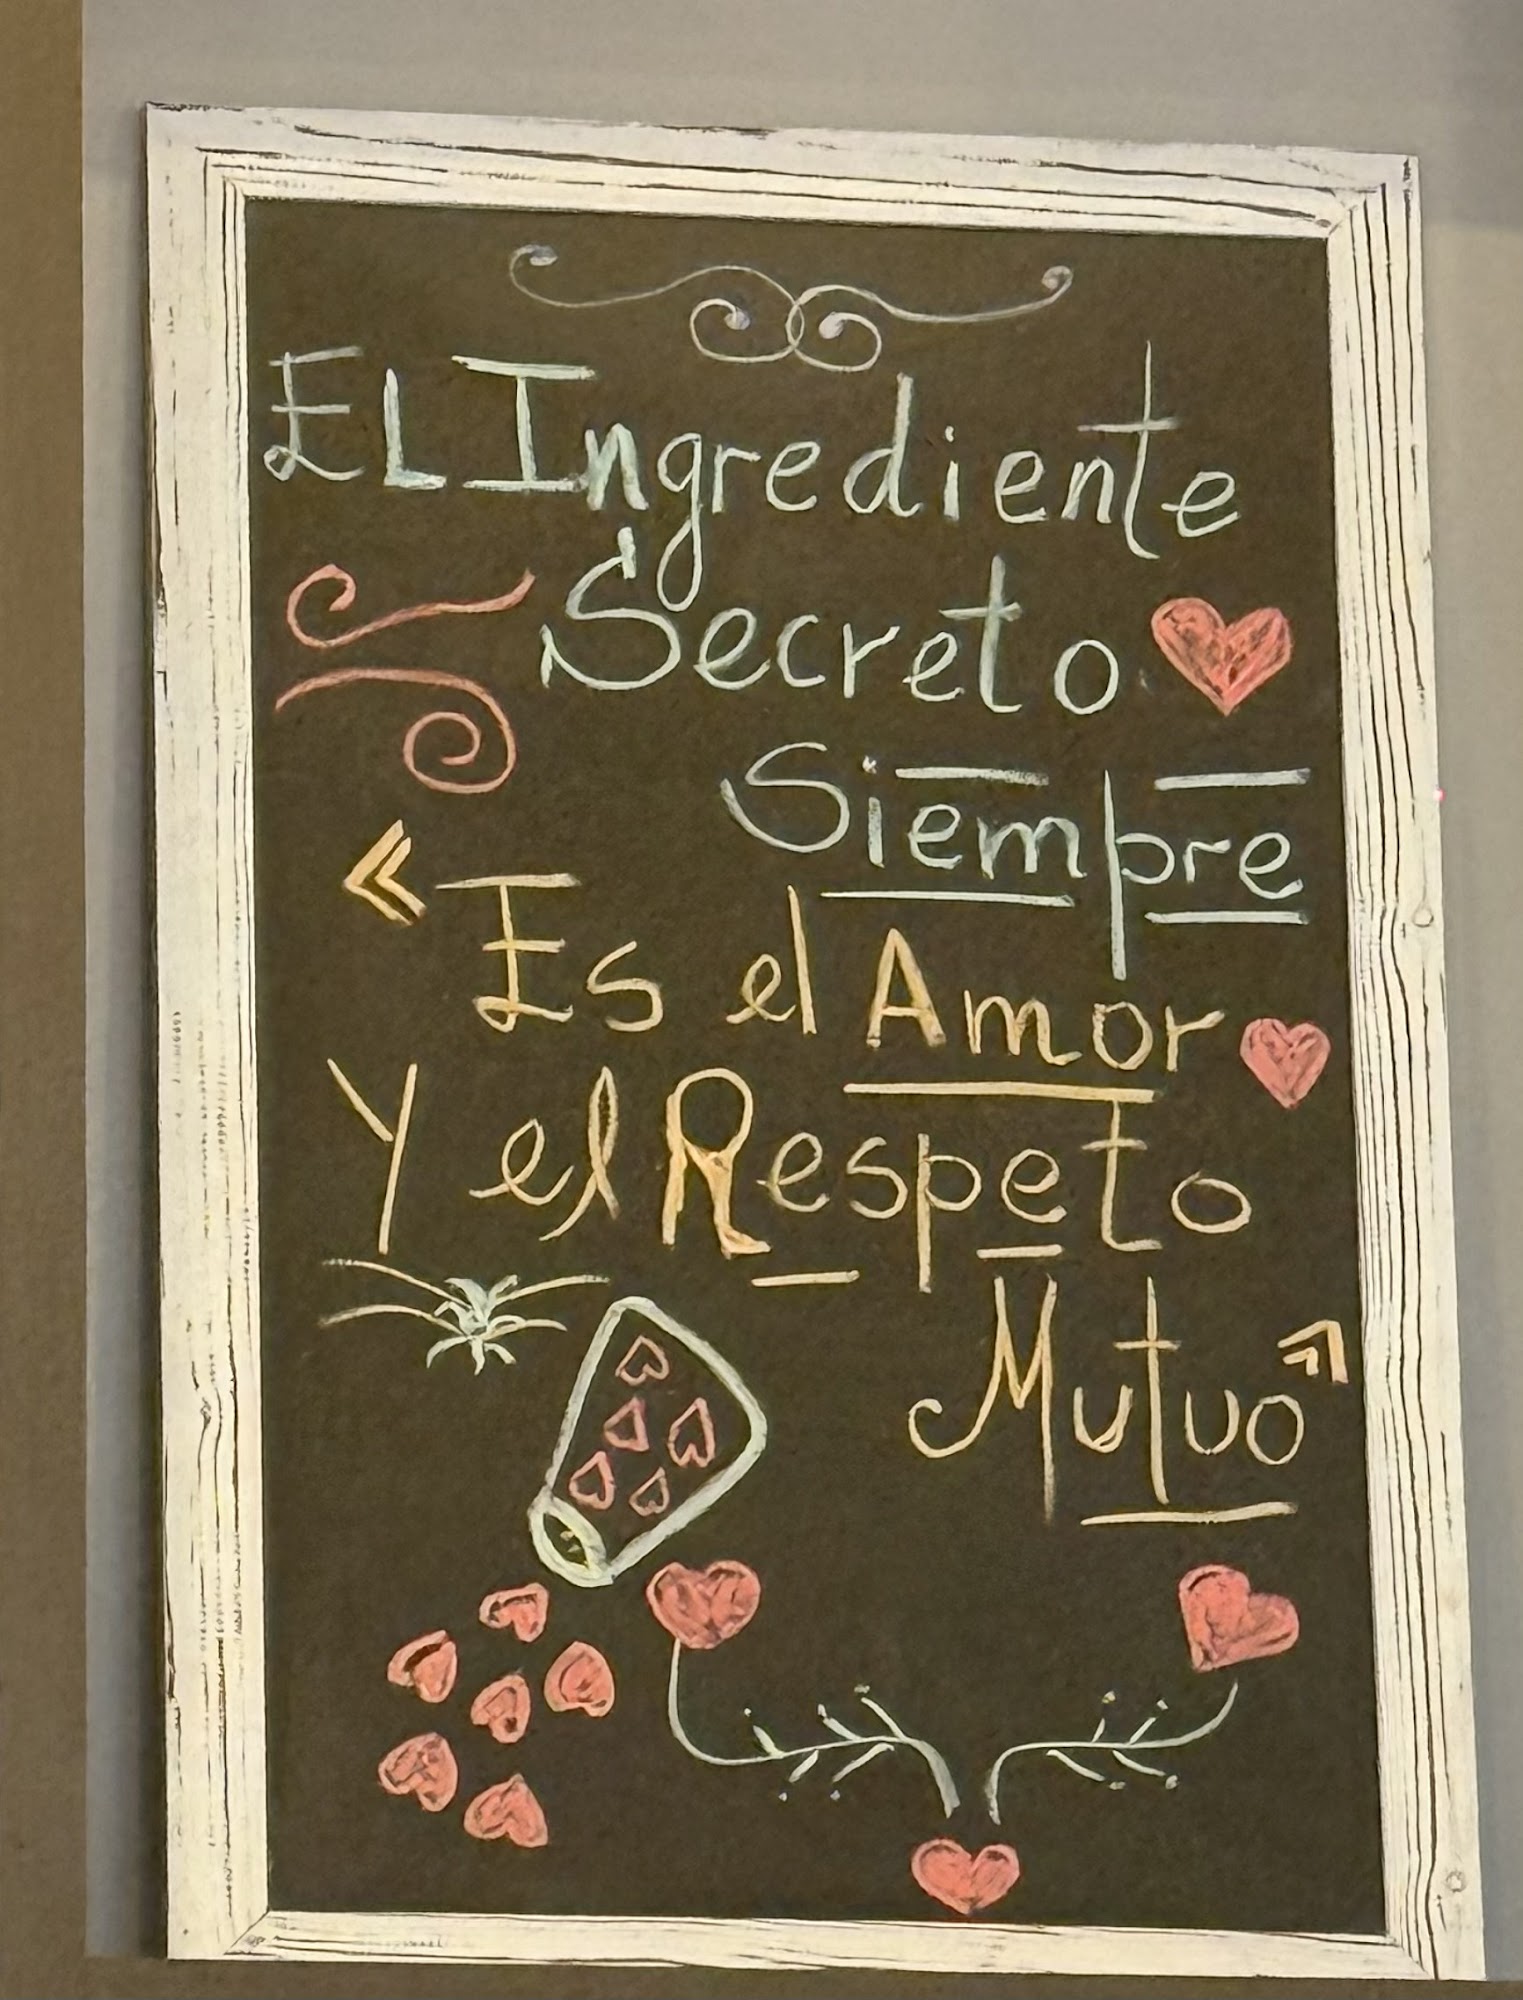 EL Ingrediente
Secreto
Siempre
"Es el Amor
Y el Respeto
Mutuo"